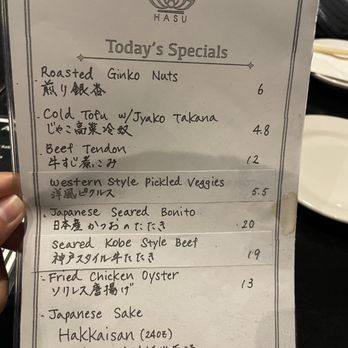 HASU
Today's Specials
Roasted Ginko Nuts
煎り銀杏 6
Cold Tofu w/Jyako Takana
じゃこ高菜冷奴 4.8
Beef Tendon
牛すじ煮こみ 12
Western Style Pickled Veggies
洋風ピクルス 5.5
Japanese Seared Bonito
日本産かつおのたたき 20
Seared Kobe Style Beef
神戸スタイル牛たたき 19
Fried Chicken Oyster
ソリレス唐揚げ 13
Japanese Sake
Hakkaisan (240g)